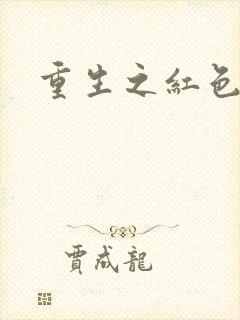 重生之紅色
賈成龍